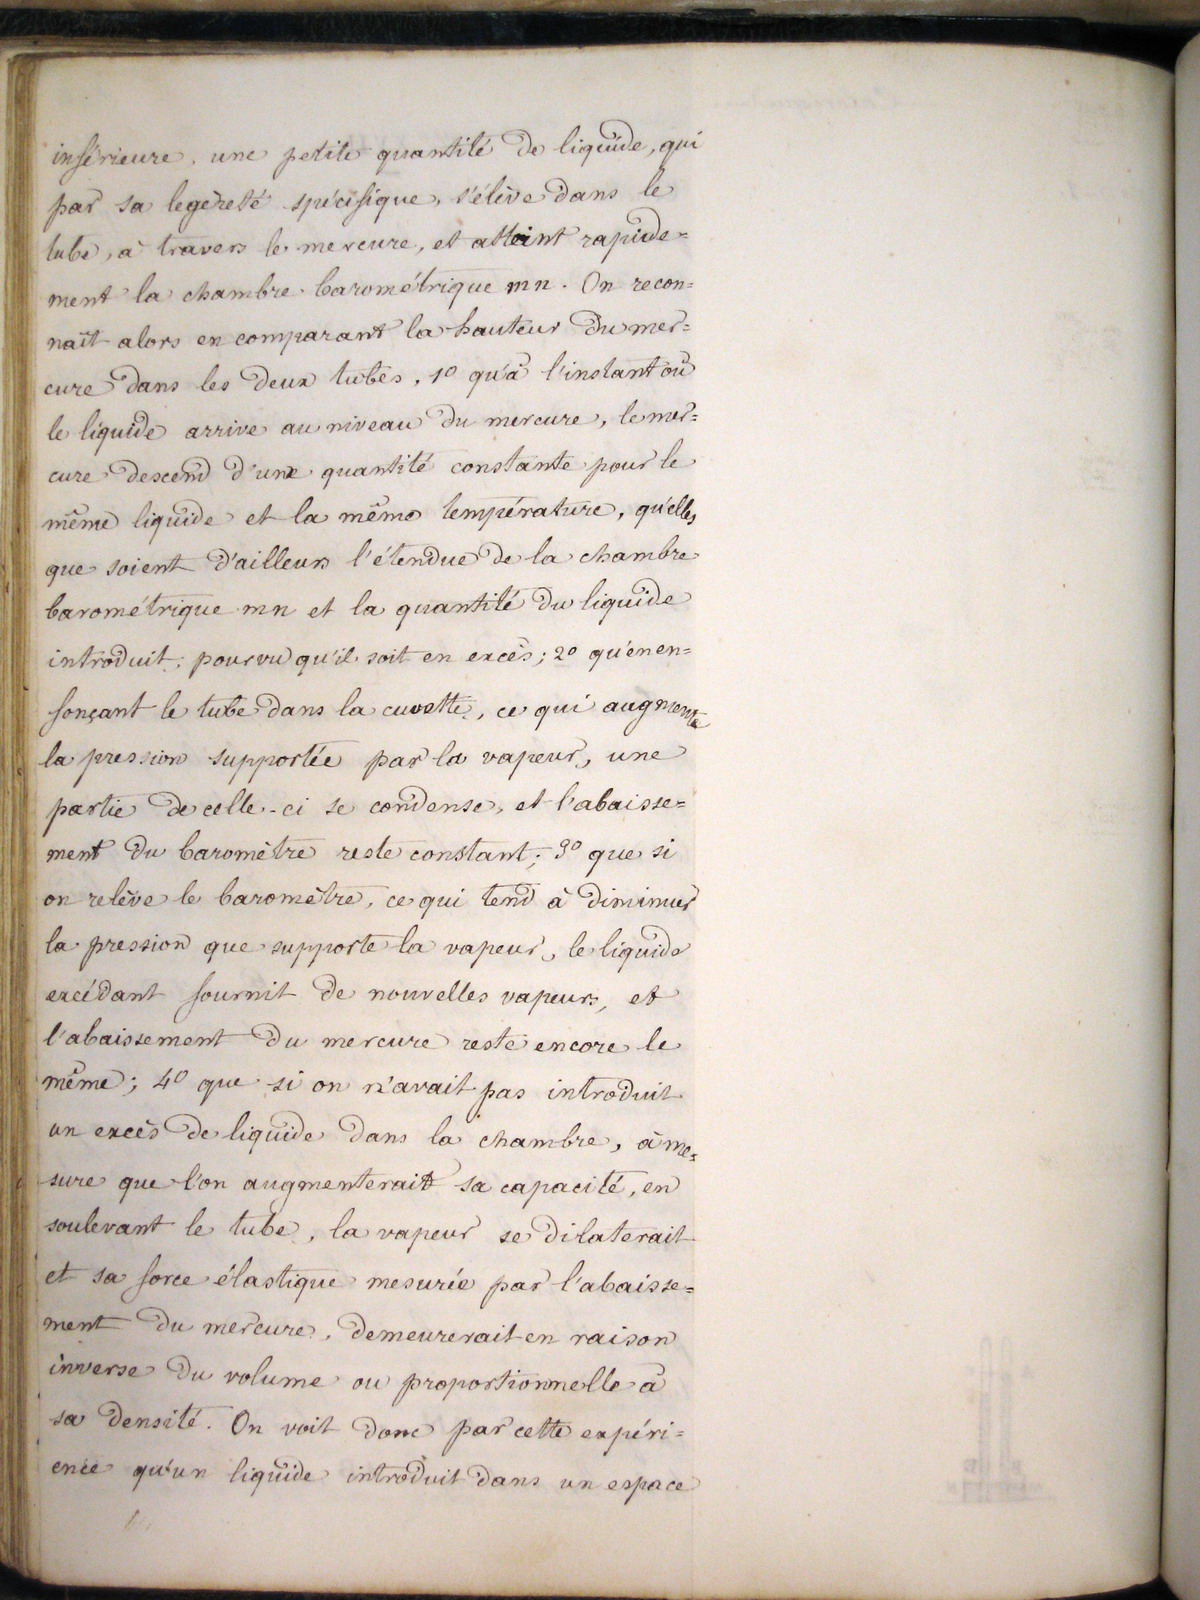 inférieure, une petite quantité de liquide, qui
par sa legèreté spécifique, s'élève dans le
tube, à travers le mercure, et atteint rapide=
ment la chambre barométrique mn. On recon=
naît alors en comparant la hauteur du mer=
cure dans les deux tubes, 1º qu'à l'instant où
le liquide arrive au niveau du mercure, le mer=
cure descend d'une quantité constante pour le
même liquide et la même température, qu'elles
que soient d'ailleurs l'étendue de la chambre
barométrique mn et la quantité du liquide
introduit, pourvu qu'il soit en excès; 2º qu'en en=
fonçant le tube dans la cuvette, ce qui augmente
la pression supportée par la vapeur, une
partie de celle-ci se condense, et l'abaisse=
ment du baromètre reste constant; 3º que si
on relève le baromètre, ce qui tend à diminuer
la pression que supporte la vapeur, le liquide
excédant fournit de nouvelles vapeurs, et
l'abaissement du mercure reste encore le
même; 4º que si on n'avait pas introduit
un excès de liquide dans la chambre, à me=
sure que l'on augmenterait sa capacité, en
soulevant le tube, la vapeur se dilaterait
et sa force élastique mesurée par l'abaisse=
ment du mercure, demeurerait en raison
inverse du volume ou proportionnelle à
sa densité. On voit donc par cette expéri=
ence qu'un liquide introduit dans un espace